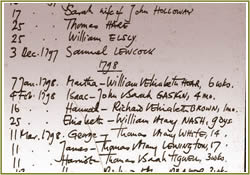 17 . . Sarah wife of John HOLLOWAY
25 . . Thomas HARE
25 . . William ELSLY
3 Dec. 1797 Samuel LEWCOCK
1798
7 Jan. 1798. Martha - William & Elizabeth HOAR, 6 wks.
4 Feb. 1798 Isaac - John & Sarah GASKIN, 4 mo.
16 . . Hannah - Richard & Elizabeth BROWN, 1 mo.
25 . . Elizabeth - William & Mary NASH, 9 dys.
11 Mar. 1798. George - Thomas & Mary WHITE, 14
11 . . James - Thomas & Mary LEWINGTON, 17
11 . . Harriet - Thomas & Sarah